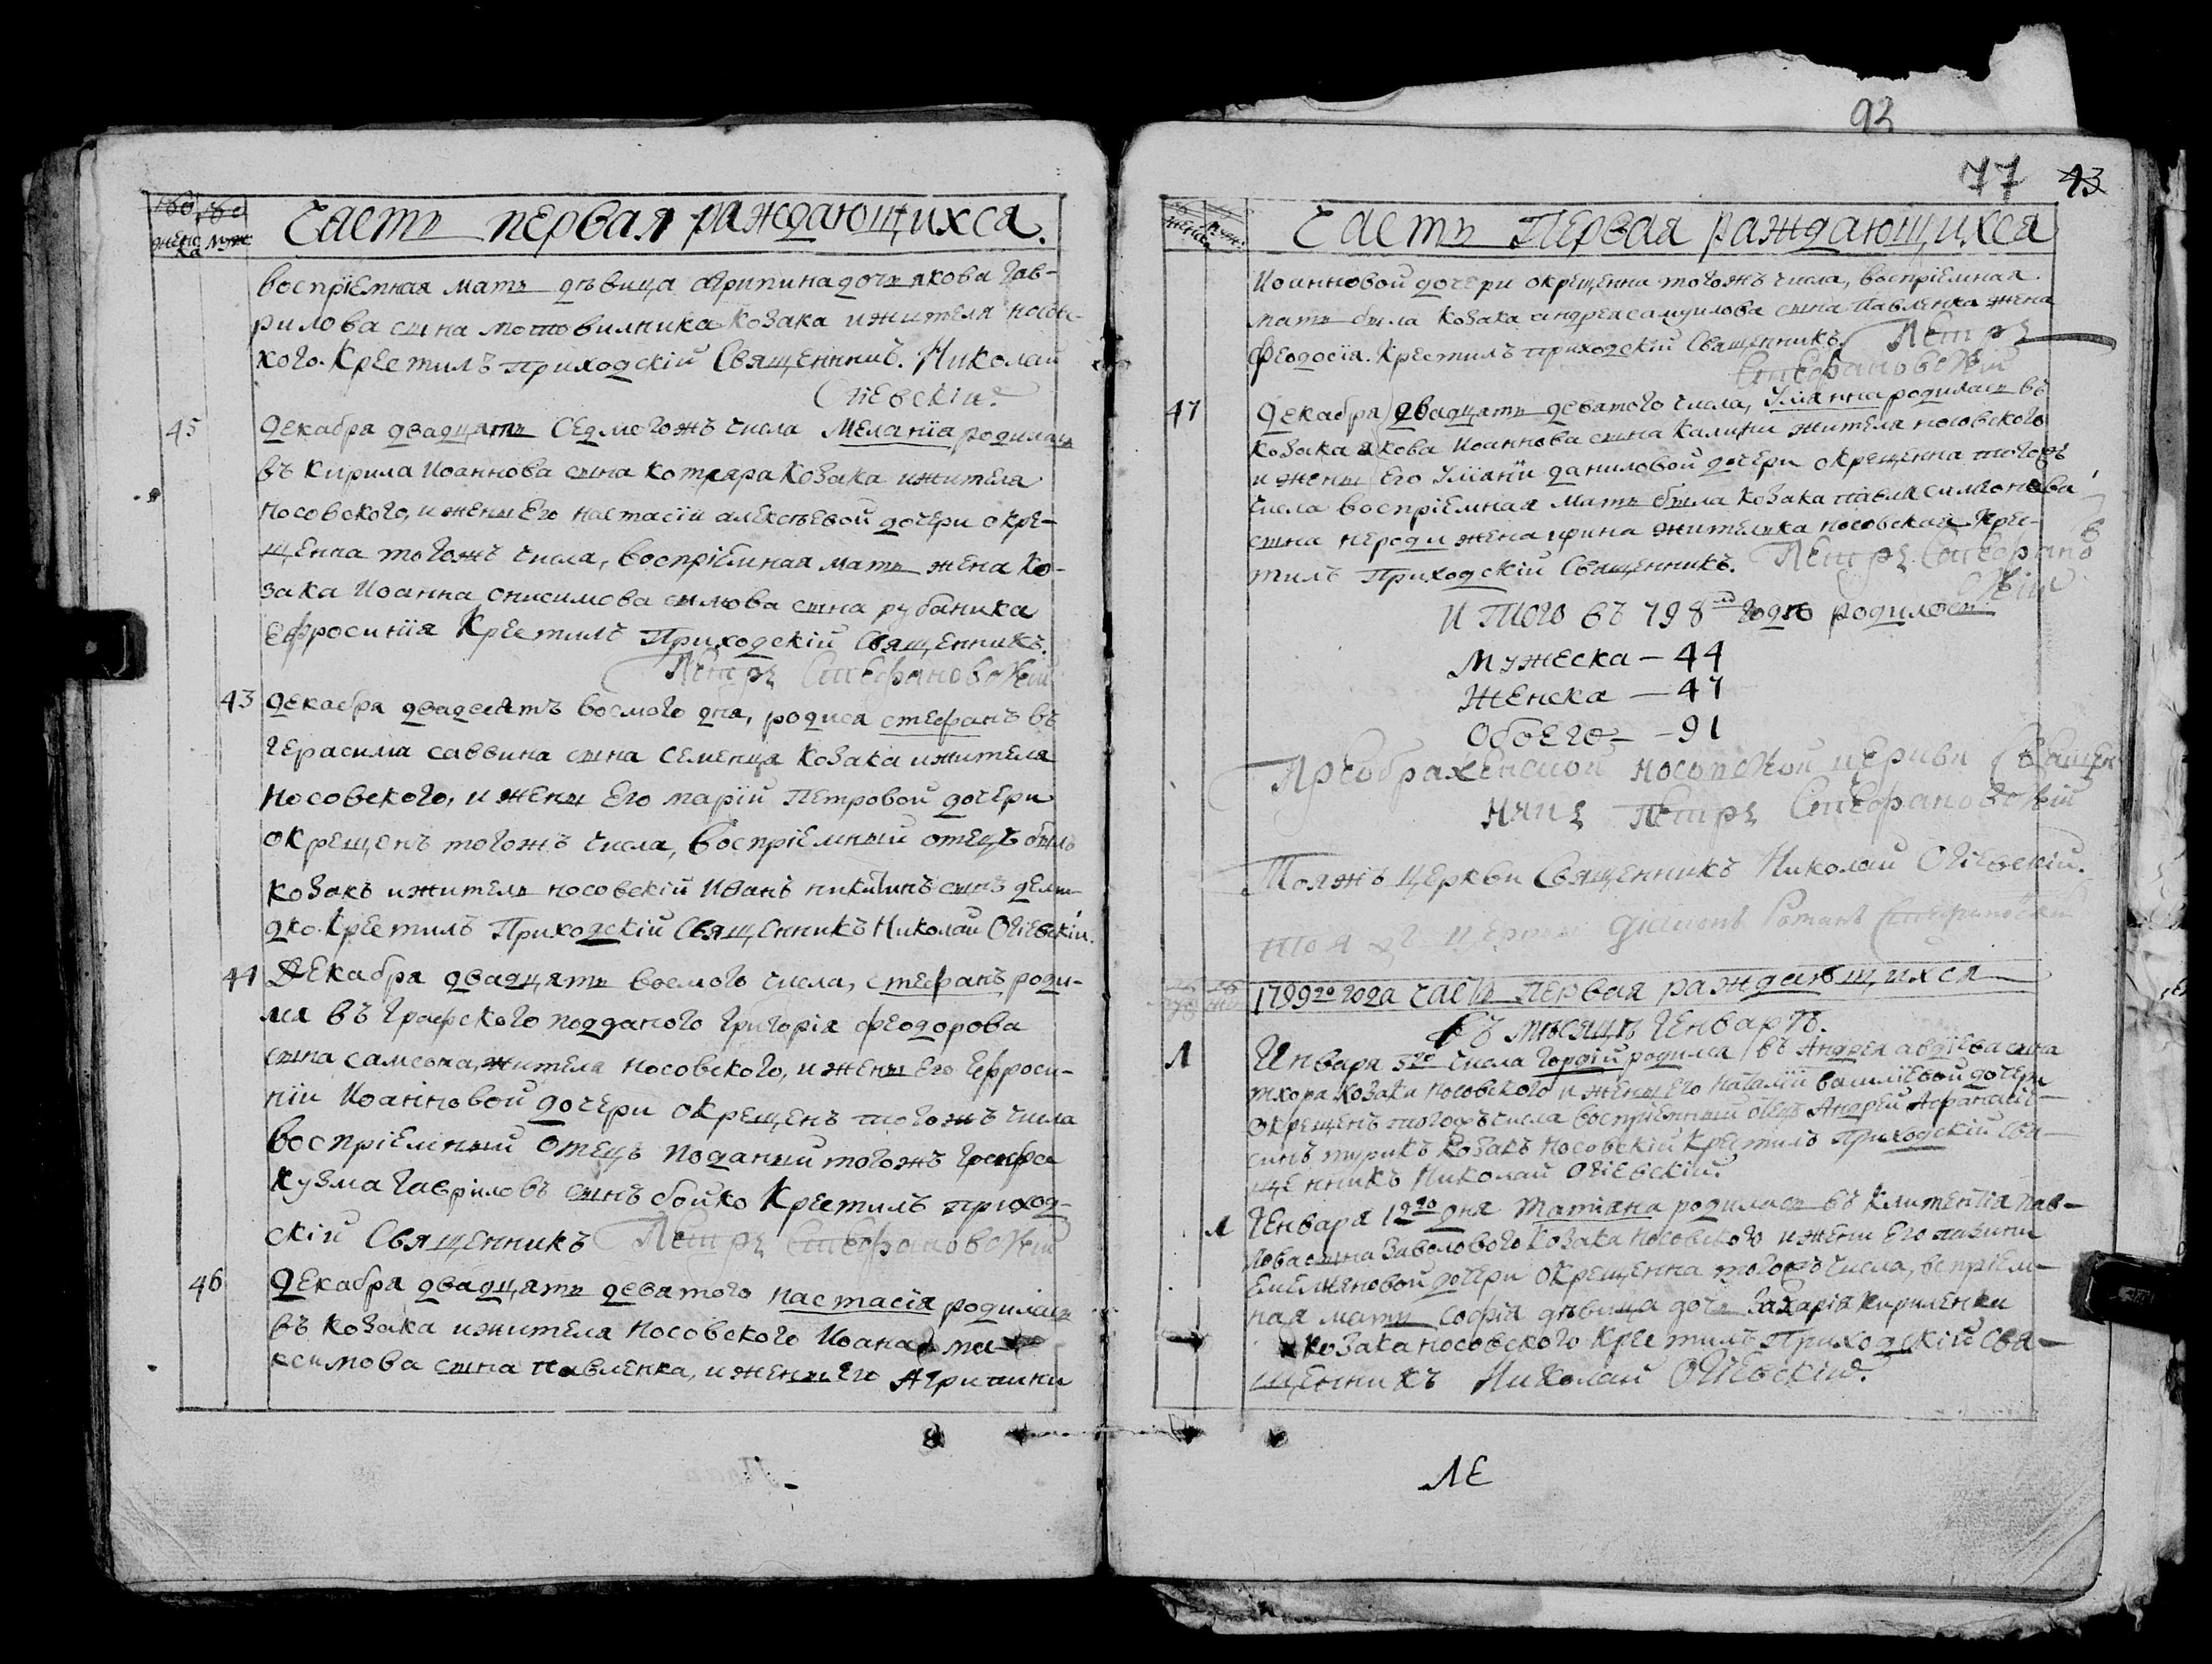 93
77 43
женс
ка муж
Часть первая раждающихся.
воспріемная мать дѣвица Агрипина дочь якова Гав-
рилова сына мотовилника козака и жителя носовс-
кого. Крестилъ приходскій Священникъ. Николай
Огіевскій.
45 Декабра двадцять седмогожъ числа Меланїа родилась
въ Кирила Иоаннова сына котляра козака и жителя
носовского, и жены Его настасїи алексѣевой дочери окре-
щенна тогожъ числа, воспріемная мать жена ко-
зака Иоанна онисимова сына рубаника
Ефросинїя Крестилъ Приходскій Священникъ.
Петръ Стефановскій
43 Декабра двадесятъ восмого дня, родися стефанъ въ
герасима саввина сына семенця козака и жителя
носовского, и жены Его марїи Петровой дочери
окрещенъ тогожъ числа, воспріемный отецъ былъ
козакъ и житель носовскій Иванъ никитинъ сынъ
дко. Крестилъ Приходскій Священникъ Николай Огіевскій.
44 Декабра двадцять восмого числа, стефанъ роди-
лся въ Графского подданого григорія феодорова
сына самсона, жителя носовского, и жены Его Ефроси-
нїи Иоанновой дочери окрещенъ тогожъ числа
воспріемный отецъ поданый тогожъ графа
Кузма гавриловъ сынъ бойко Крестилъ приход-
скій Священникъ Петръ Стефановскій
46 Декабра двадцять девятого настасїя родилась
въ козака и жителя носовского Иоана ма-
ксимова сына павленка, и жены Его Агрипини
Часть Первая раждающихся
Иоанновой дочери окрещенна тогожъ числа, воспріемная
мать была козака андрея самуилова сына павленка жена
Феодосїа. Крестилъ приходскій Священникъ Петръ
Стефановскій
47 Декабра двадцять девятого числа, Улїанна родилась въ
козака якова Иоаннова сына Калини жителя носовского
и жены Его Улїанїи даниловой дочери окрещенна тогожъ
числа воспріемная мать была козака павла симионова
сына жена ирина жителька носовская. Крес-
тилъ Приходскій Священникъ. Петръ Стефанов
скій
И того въ 798м годѣ родилось
Мужеска - 44
Женска - 47
Обоего - 91
Преображенской носовской церкви Священ
никъ Петръ Стефановскій
Тояжъ церкви Священникъ Николай Огіевскій.
Тояжъ церкви діаконъ Романъ Стефановскій
1799го года часть первая раждающихся
Въ мѣсяцѣ Генварѣ.
1 Генваря 3го числа Гордїй родился въ Андрея авдїева сына
тхора козака носовского и жены Его Наталїи василіевой дочери
окрещенъ тогожъ числа воспріемный отецъ Андрей Афанасіе-
синъ турикъ козакъ носовскій Крестилъ Приходскій Свя-
щенникъ Николай Огіевскій.
1 Генваря 12го дня Татїана родилась въ Климентїя пав-
лова сына козака носовского и жены Его
Емельяновой дочери окрещенна тогожъ числа, воспріем-
ная мать Софїя дѣвица дочь Захарїя кириленки
козака носовского Крестилъ Приходскій Свя-
щенникъ Николай Огіевскій.
ЛЕ